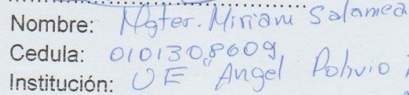 Nombre: Mgter. Miriam Salamea
Cedula: 0101308609
Institución: UE Angel Polivio